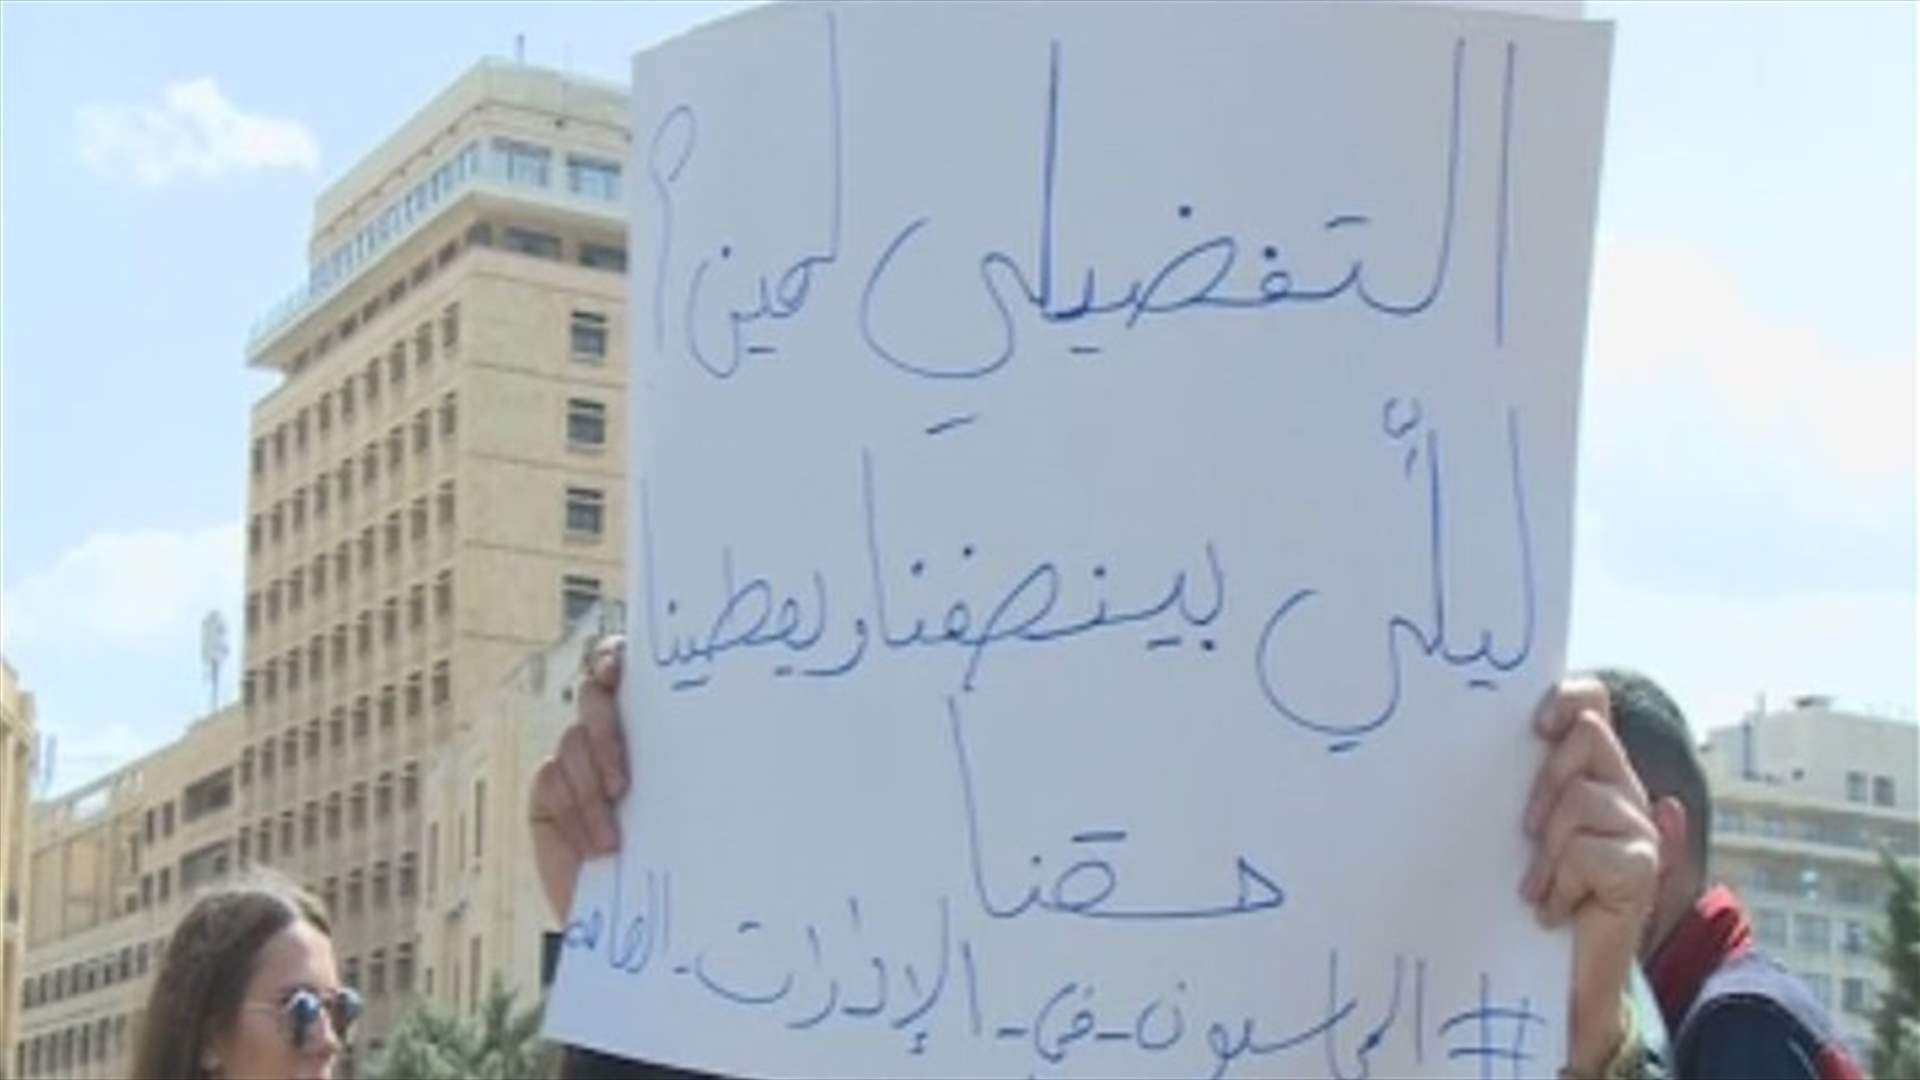 التفضيلي لمين؟
ليلّي بينصفنا ويعطينا
حقنا
#المحاسبون_في_الإدارات_العامة